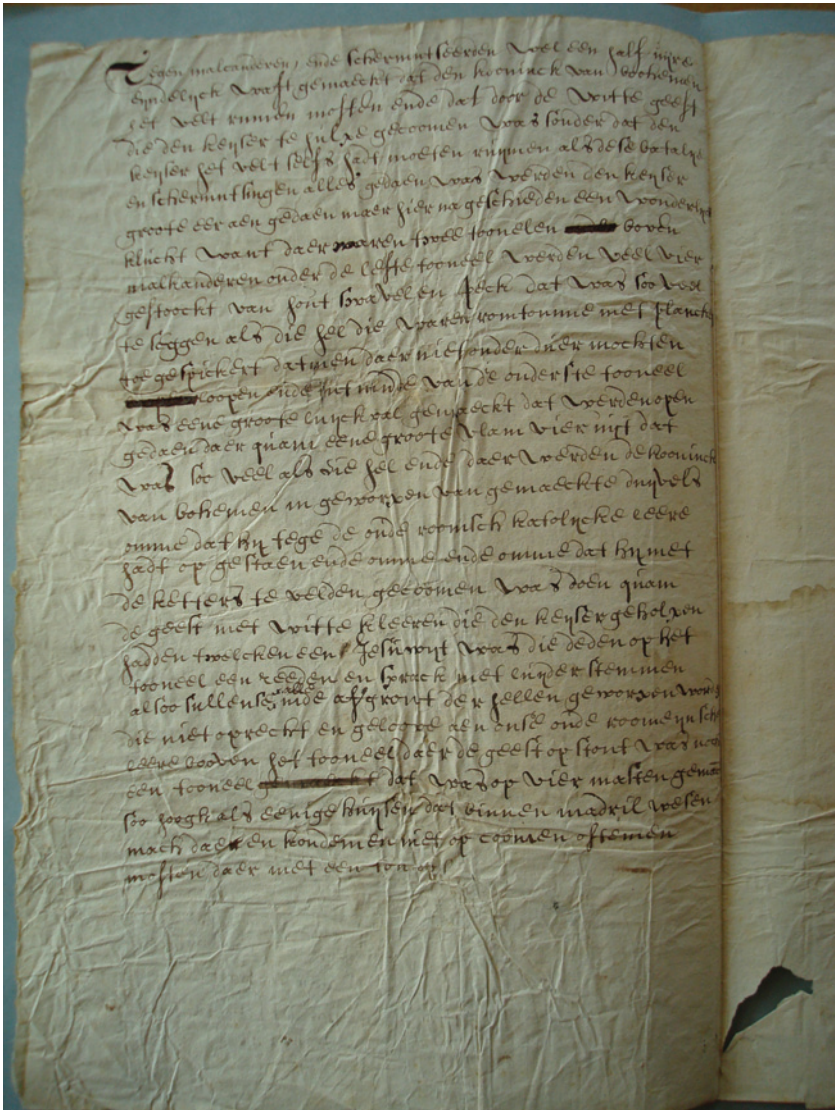 Tegen malcanderen, ende schermutseerden wel een half uijre
eijndelijck wast gemaeckt dat den kooninck van boohemen
het velt ruimen mosten ende dat door de witte geest
die den keijser te hulpe gecoomen was sonder dat den
keijser het velt selfs hadt moeten ruijmen als dese batalije
en schermutsingen alles gedaen was werden den keijser
groote eer aen gedaen maer hier na geschieden een wonderlijcke
klucht want daer waren twee toonelen boven
malkanderen onder de leste tooneel werden veel vier
gestoockt van hout swavel en peck dat was soo veel
te seggen als die hel die waren romtomme met plancken
toe gespickert datmen daer niet onder duer mochten
loopen ende int midde van de onderste tooneel
was eene groote luijck val gemaeckt dat werden open
gedaen daer quam eene groote vlam vier uijt dat
was soo veel als die hel ende daer werden de kooninck
van bohemen in geworpen van gemaeckte duijvels
omme dat hij tege de oude roomsch katolijcke leere
hadt op gestaen ende omme ende omme dat hij met
de ketters te velden gecoomen was doen quam
de geest met witte kleeren die den keijser geholpen
hadden twelcken een Jesuwijt was die deden op het
tooneel een reeden en sprack met luijder stemmen
alsoo sullense alle inde afgront der hellen geworpen worden
die niet oprecht en gelooge aen onse oude roomeijnsche
leere booven het tooneel daer de geest op stont was noch
een tooneel gemaeckt dat was op vier masten gemaeckt
soo hoogh als eenige huijsen dat binnen madril wesen
mach daer en kondemen niet op coomen oftemen
mosten daer met een ton op